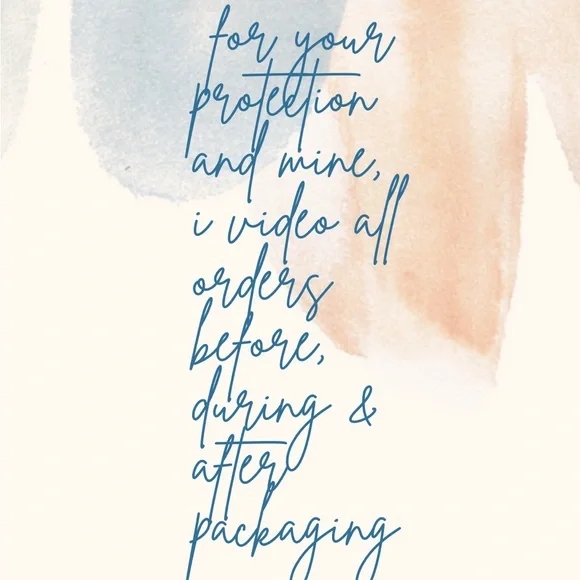 for your
protection
and mine,
i video all
orders
before,
during &
after
packaging